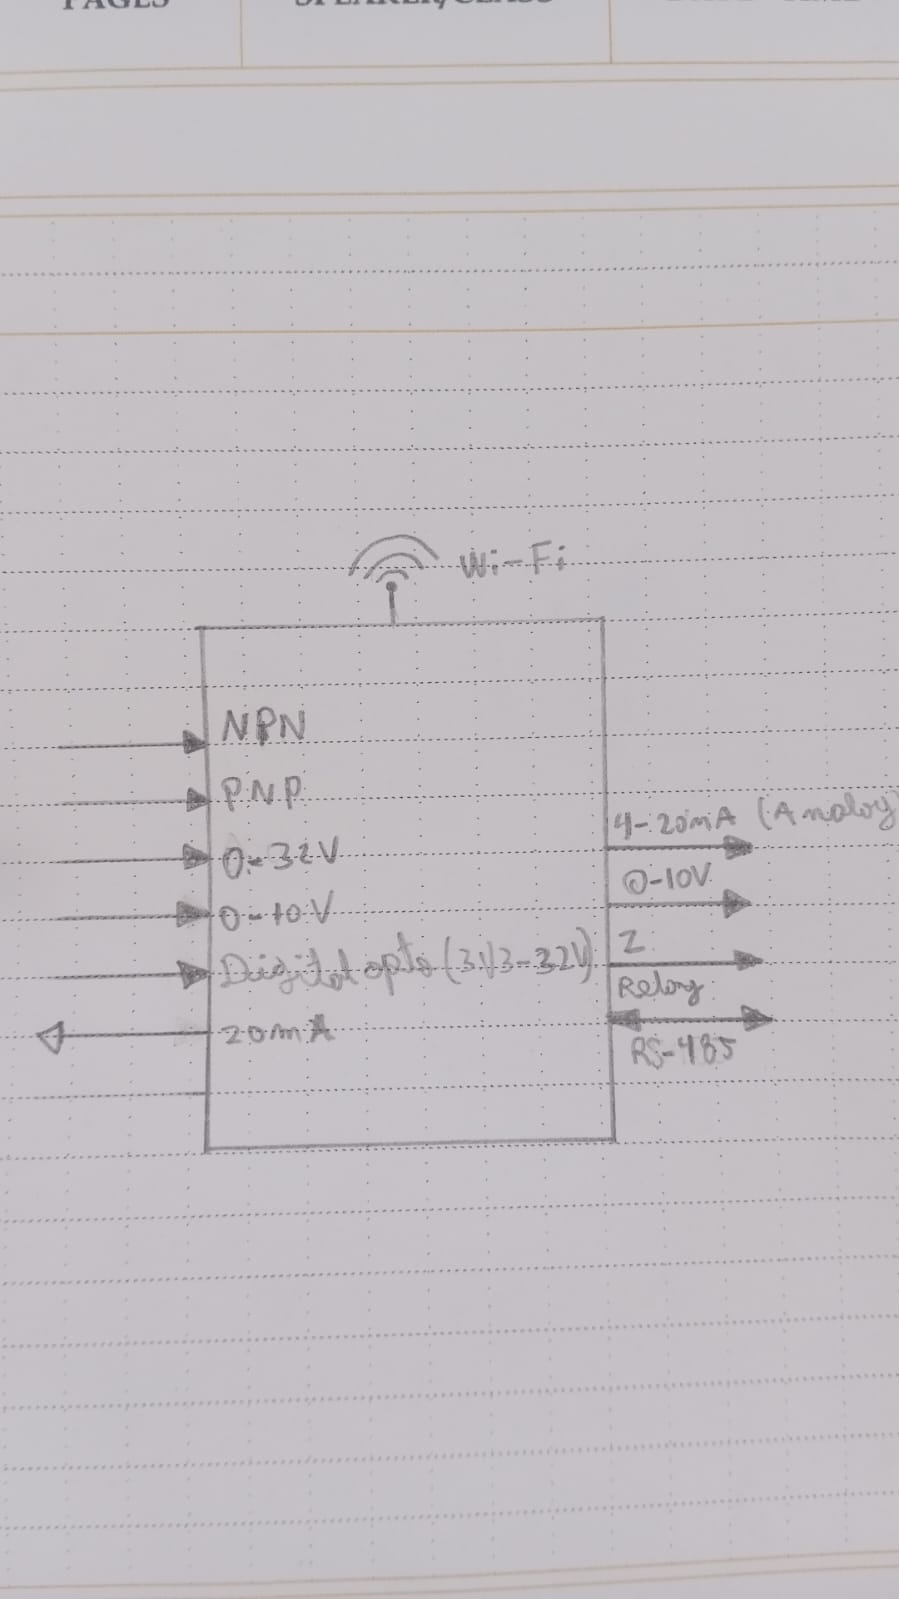 PAGES
SPEAKER/CLASS
DATE - TIME
Wi-Fi
NPN
PNP
0-32V
0-10V
Digital opto (3V3-32V)
20mA
4-20mA (Analog)
0-10V
2
Relay
RS-485